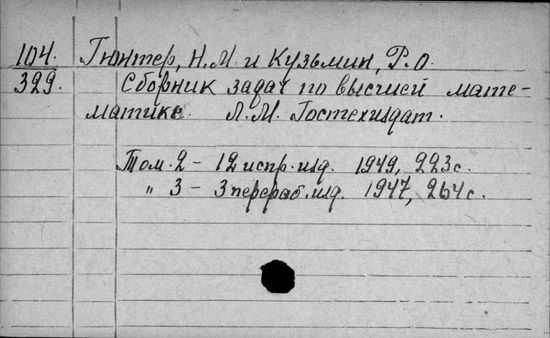 104. Гюнтер, Н. М и Кузьмин, Р. О.
329. Сборник задач по высшей мате-
матике. Л. М. Гостехиздат.
Том. 2 - 12 испр. изд. 1949, 223 с.
" 3 - 3 перераб. изд. 1947, 264 с.